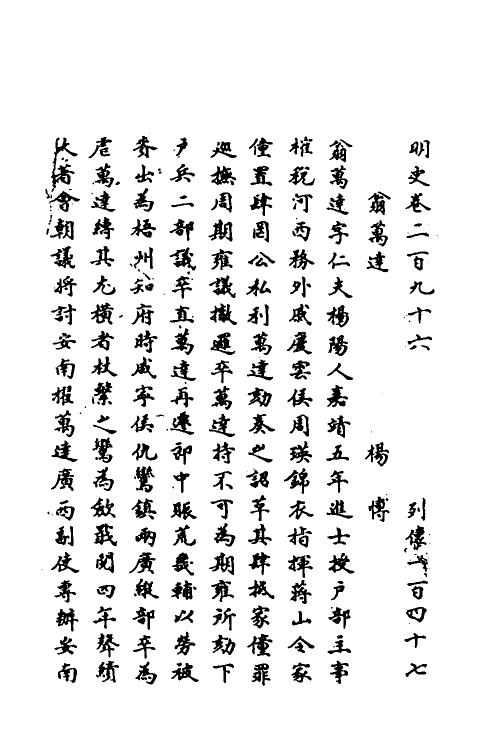 明史卷二百九十六　列傳一百四十七
翁萬達　楊博
翁萬達字仁夫楊陽人嘉靖五年進士授户部主事
榷稅河西務外戚慶雲侯周瑛錦衣指揮蔣山令家
僮置肆罔公私利萬達劾奏之詔革其肆抵家僮罪
廵撫周期雍議撤邏卒萬達持不可為期雍所劾下
户兵二部議卒直萬達再遷郎中賑荒畿輔以勞被
賚出為梧州知府時咸寧侯仇鸞鎮兩廣縱部卒為
虐萬達縛其尤橫者杖繫之鸞為歛戢閱四年聲績
大著會朝議將討安南擢萬達廣西副使專辦安南